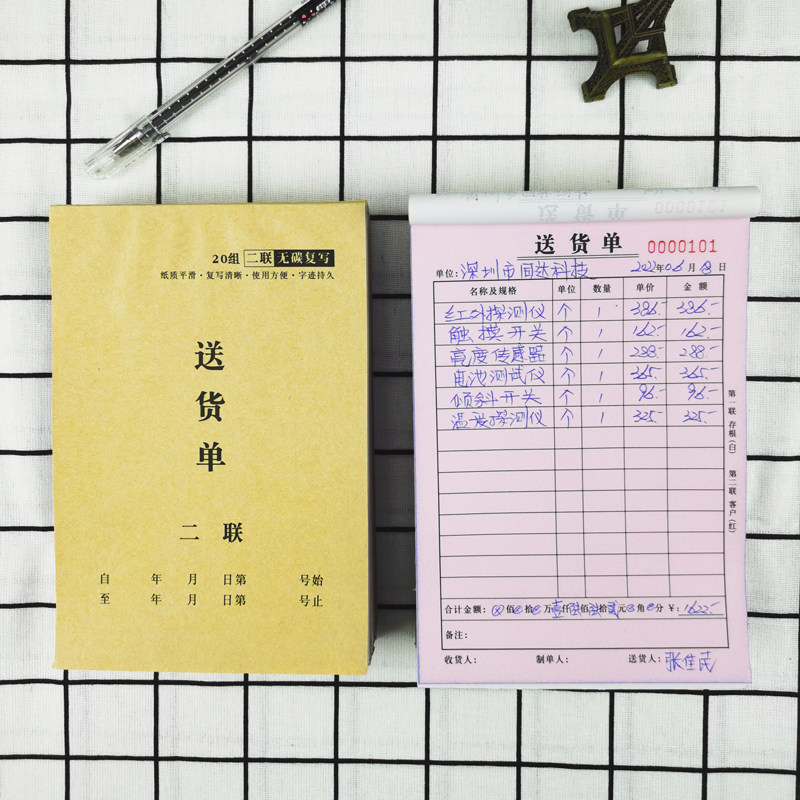 20组 二联 无碳复写
纸质平滑·复写清晰·使用方便·字迹持久
送货单
二 联
自 年 月 日第 号始
至 年 月 日第 号止
送货单 0000101
单位: 深圳市同达科技 2022年06月 日
名称及规格 单位 数量 单价 金额
红外探测仪 个 1 386.- 386.-
触摸开关 个 1 162.- 162.-
亮度传感器 个 1 288.- 288.-
电池测试仪 个 1 365.- 365.-
倾斜开关 个 1 96.- 96.-
温度探测仪 个 1 325.- 325.-
合计金额: ⊗ 佰 拾 万 壹 仟 陆 佰 拾 贰 元 角 分 ¥: 1622.-
备注:
收货人: 制单人: 送货人: 张佳民
第一联 存根(白) 第二联 客户(红)